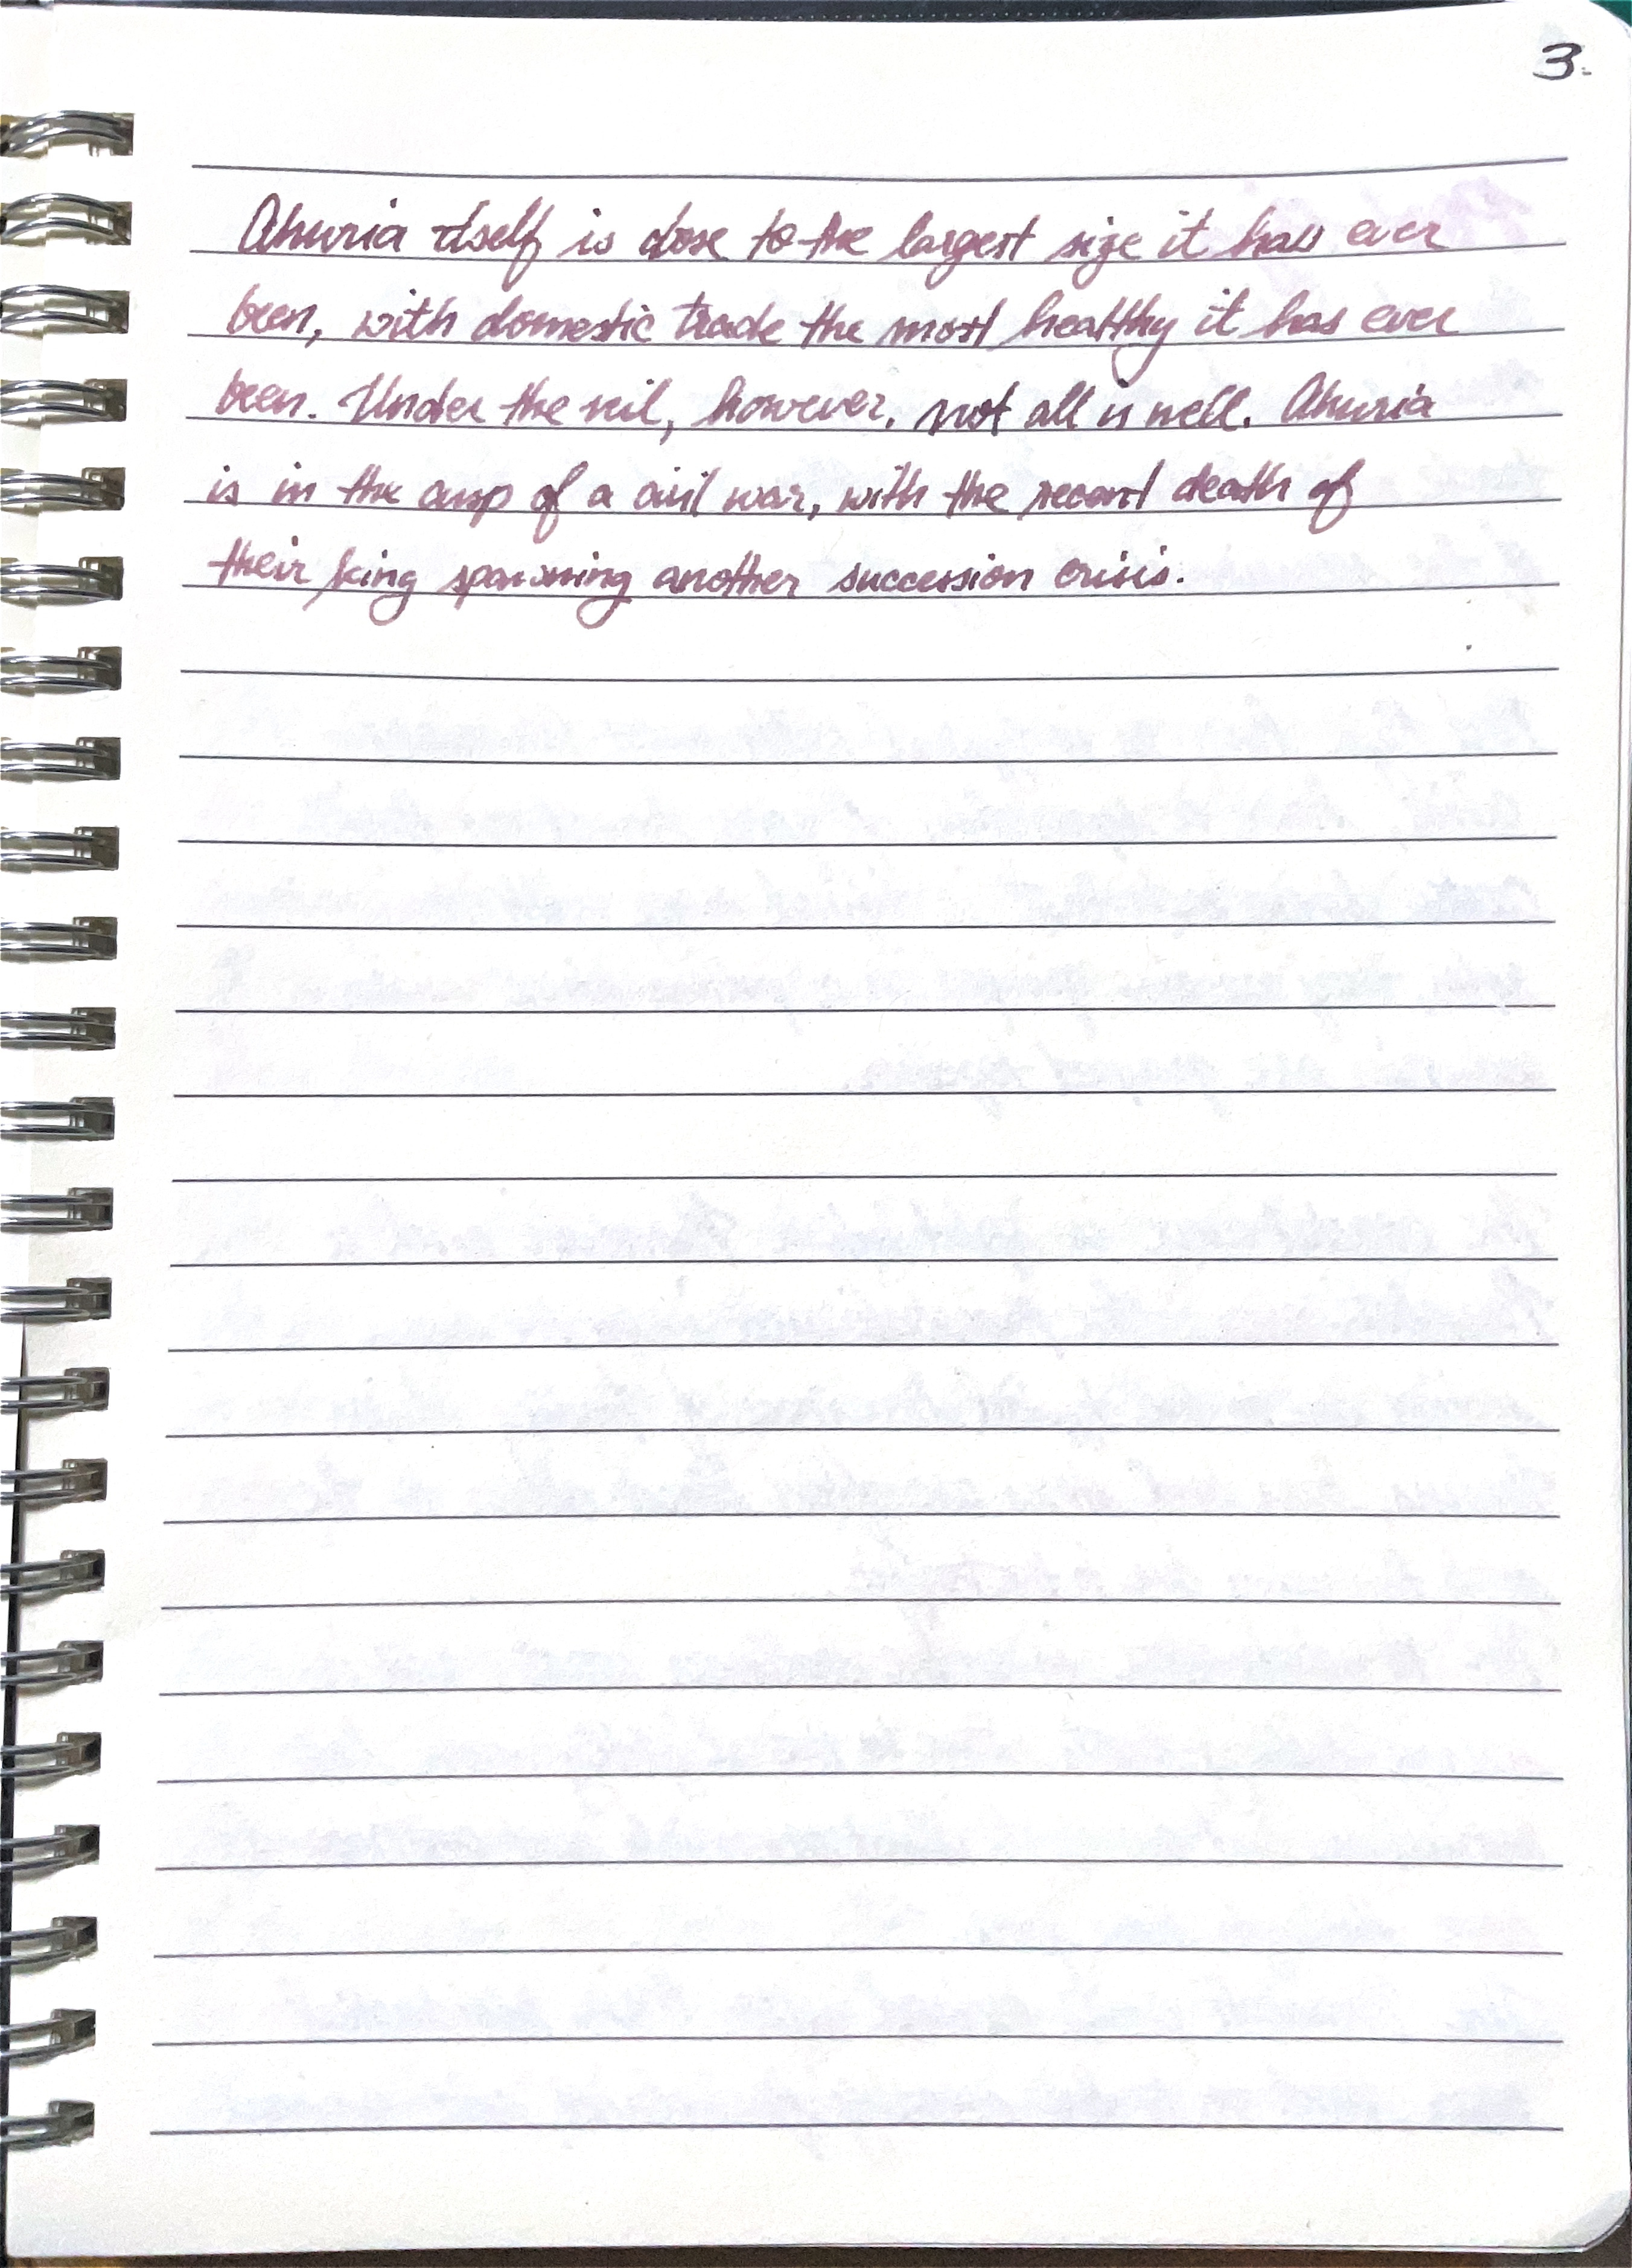 3.
Ahuria itself is close to the largest size it has ever
been, with domestic trade the most healthy it has ever
been. Under the veil, however, not all is well. Ahuria
is in the cusp of a civil war, with the recent death of
their king spawning another succession crisis.